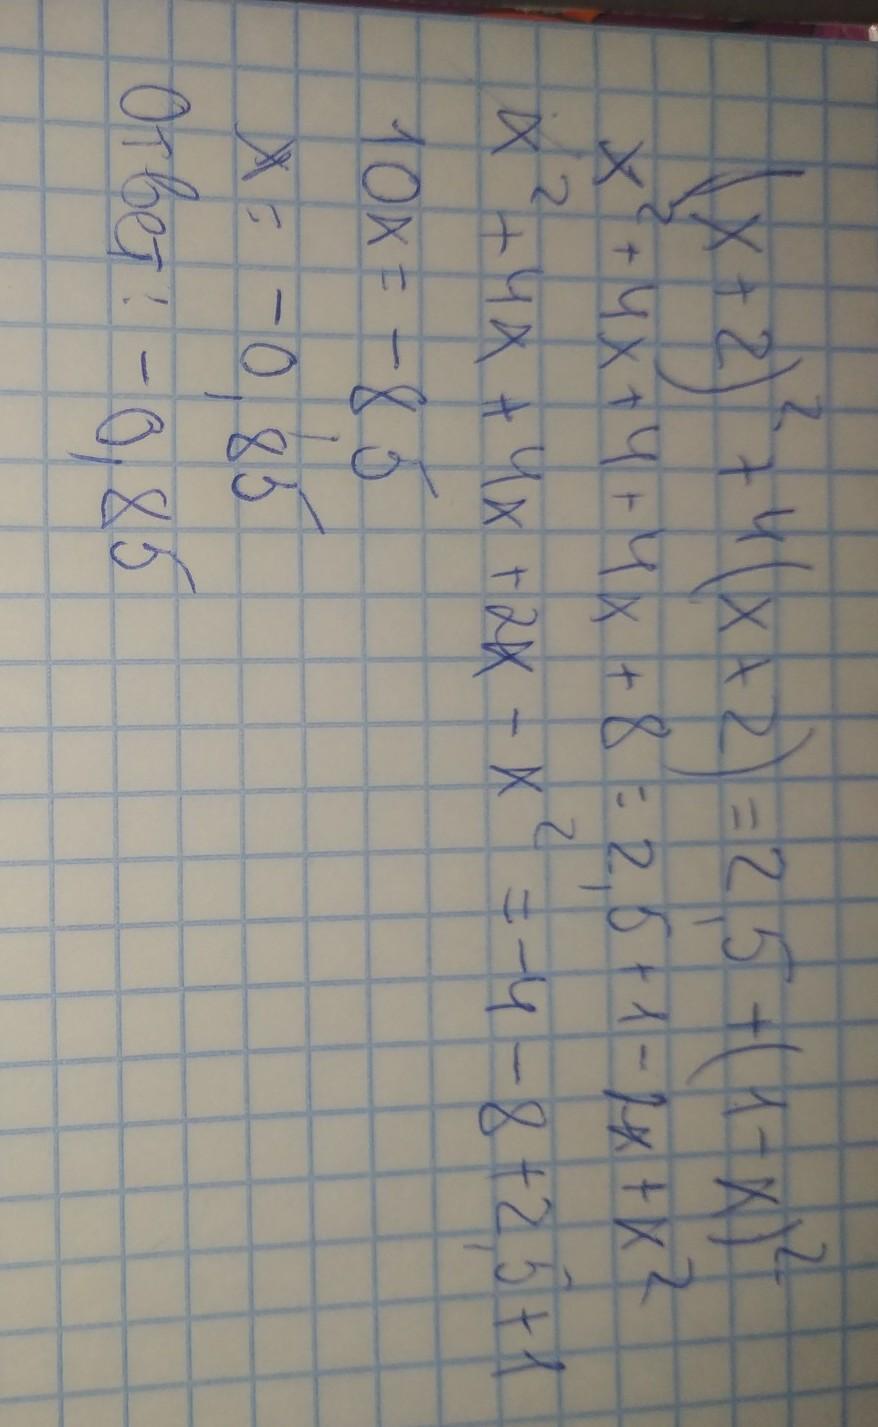 (x+2)² + 4(x+2) = 2,5 + (1-x)²
x² + 4x + 4 + 4x + 8 = 2,5 + 1 - 2x + x²
x² + 4x + 4x + 2x - x² = -4 - 8 + 2,5 + 1
10x = -85
x = -0,85
Ответ: -0,85